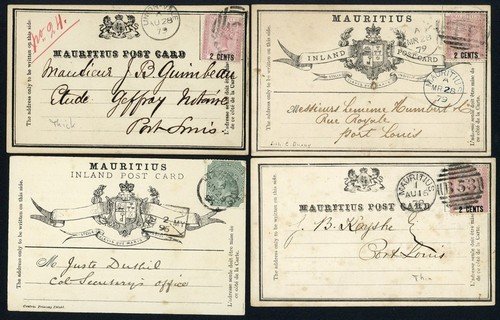 no. 24.
AU 28
79
2 CENTS
MAURITIUS POST CARD
The address only to be written on this side.
L'adresse seule doit être mise de ce côté de la Carte.
Monsieur J. B. Guimbeau
Etude Geffroy Notaire
Port Louis
Thick
MAURITIUS
INLAND POST CARD
A
MR 28
79
2 CENTS
MAURITIUS
A
MR 28
79
The address only to be written on this side.
L'adresse seule doit être mise de ce côté de la Carte.
Messieurs
Rue Royale
Port Louis
MAURITIUS
INLAND POST CARD
2 MY
96
The address only to be written on this side.
L'adresse seule doit être mise de ce côté de la Carte.
M. Juste
Col: Secretary's office
General Printing Establt.
MAURITIUS
1
AU 16
B53
2 CENTS
MAURITIUS POST CARD
The address only to be written on this side.
L'adresse seule doit être mise de ce côté de la Carte.
J. B.
Port Louis
Thin